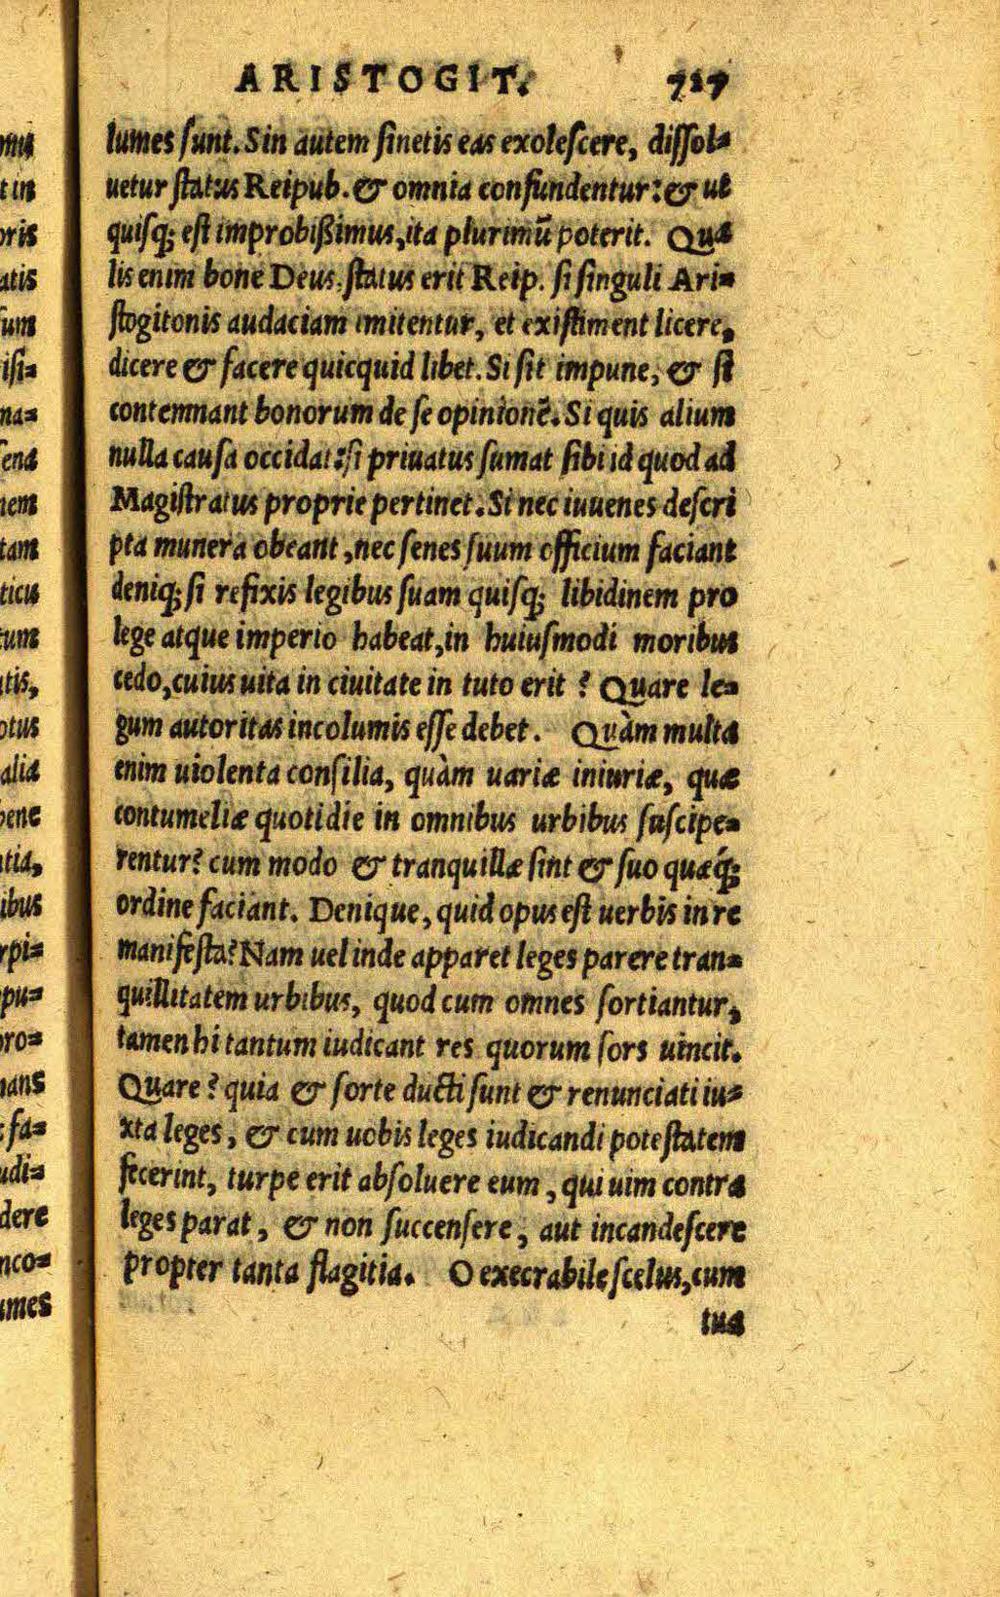 ARISTOGIT. 717
lumes sunt. Sin autem sinetis eas exolescere, dissol-
uetur status Reipub. & omnia confundentur: & ut
quisq; est improbißimus, ita plurimū poterit. Qua
lis enim bone Deus, status erit Reip. si singuli Ari-
stogitonis audaciam imitentur, et existiment licere,
dicere & facere quicquid libet. Si sit impune, & si
contemnant bonorum de se opinionē. Si quis alium
nulla causa occidat: si priuatus sumat sibi id quod ad
Magistratus proprie pertinet. Si nec iuuenes descri
pta munera obeant, nec senes suum officium faciant
deniq; si refixis legibus suam quisq; libidinem pro
lege atque imperio habeat, in huiusmodi moribus
cedo, cuius uita in ciuitate in tuto erit? Quare le-
gum autoritas incolumis esse debet. Quàm multa
enim uiolenta consilia, quàm uariæ iniuriæ, quæ
contumeliæ quotidie in omnibus urbibus suscipe-
rentur? cum modo & tranquillæ sint & suo quæq́;
ordine faciant. Denique, quid opus est uerbis in re
manifesta? Nam uel inde apparet leges parere tran-
quillitatem urbibus, quod cum omnes sortiantur,
tamen hi tantum iudicant res quorum sors uincit.
Quare? quia & sorte ducti sunt & renunciati iu-
xta leges, & cum uobis leges iudicandi potestatem
fecerint, turpe erit absoluere eum, qui uim contra
leges parat, & non succensere, aut incandescere
propter tanta flagitia. O execrabile scelus, cum
tua